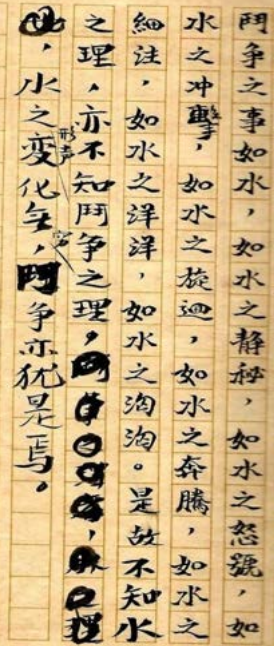 鬥争之事如水，如水之静秘，如水之怒號，如
水之冲擊，如水之旋迴，如水之奔騰，如水之
細注，如水之洋洋，如水之汹汹。是故不知水
之理，亦不知鬥争之理，
水之形声变化無穷，鬥争亦犹是焉。